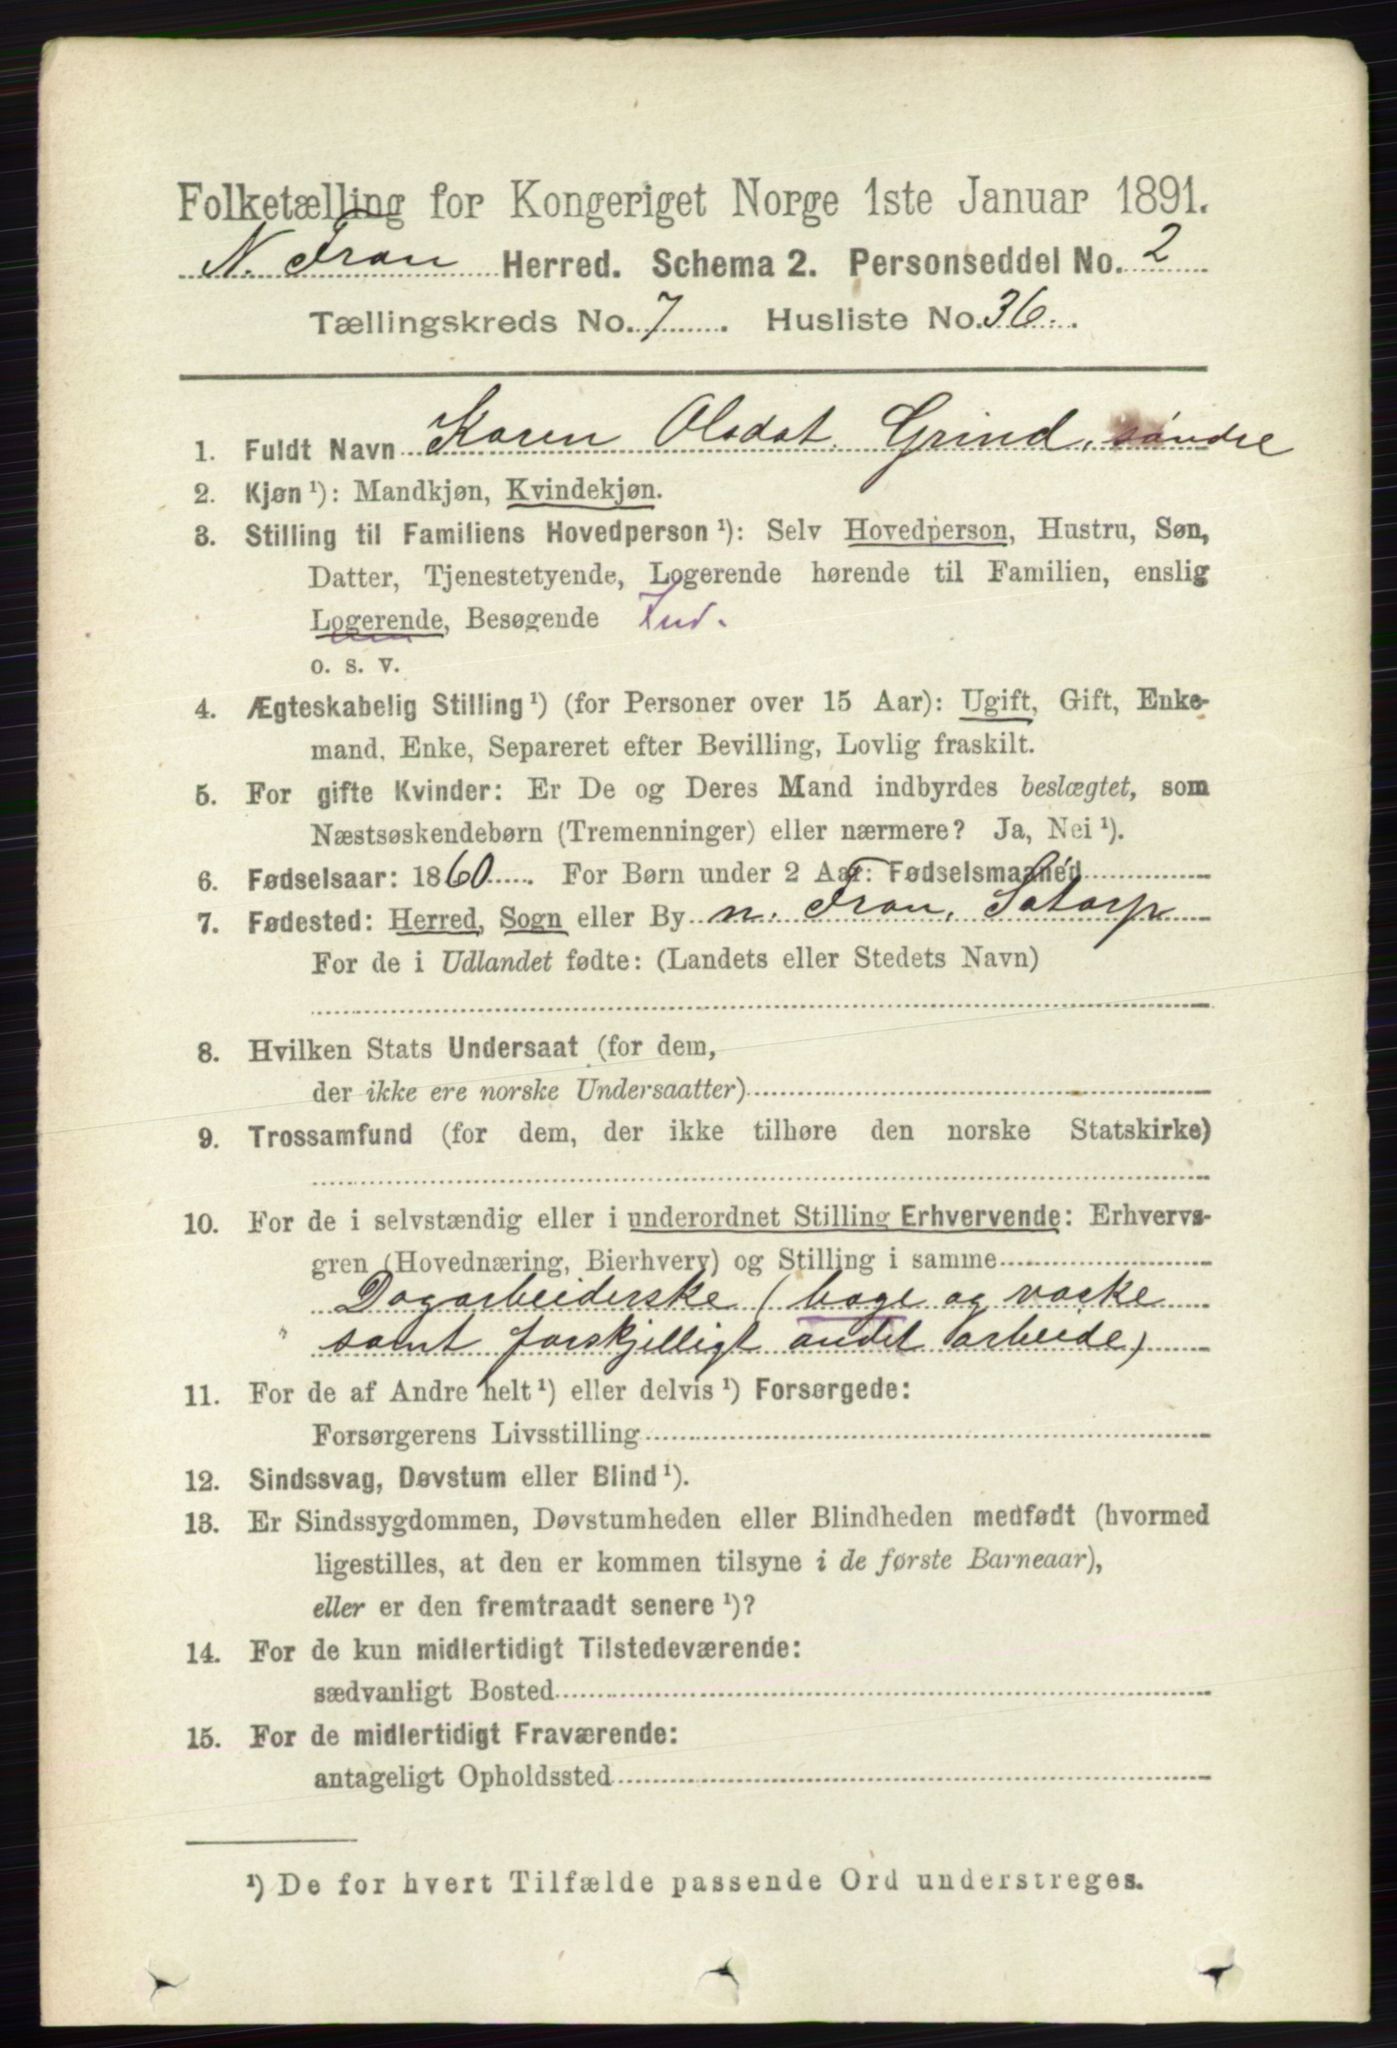 Folketælling for Kongeriget Norge 1ste Januar 1891.
N. Fron Herred. Schema 2. Personseddel No. 2
Tællingskreds No. 7. Husliste No. 36.
1. Fuldt Navn Karen Olsdat. Grind, søndre
2. Kjøn ¹): Mandkjøn, Kvindekjøn.
3. Stilling til Familiens Hovedperson ¹): Selv Hovedperson, Hustru, Søn,
Datter, Tjenestetyende, Logerende hørende til Familien, enslig
Logerende, Besøgende
o. s. v.
4. Ægteskabelig Stilling ¹) (for Personer over 15 Aar): Ugift, Gift, Enke-
mand, Enke, Separeret efter Bevilling, Lovlig fraskilt.
5. For gifte Kvinder: Er De og Deres Mand indbyrdes beslægtet, som
Næstsøskendebørn (Tremenninger) eller nærmere? Ja, Nei ¹).
6. Fødselsaar: 1860. For Børn under 2 Aar: Fødselsmaaned
7. Fødested: Herred, Sogn eller By n. Fron, Sötorp
For de i Udlandet fødte: (Landets eller Stedets Navn)
8. Hvilken Stats Undersaat (for dem,
der ikke ere norske Undersaatter)
9. Trossamfund (for dem, der ikke tilhøre den norske Statskirke)
10. For de i selvstændig eller i underordnet Stilling Erhvervende: Erhvervs-
gren (Hovednæring, Bierhverv) og Stilling i samme
Dagarbeiderske (bage og vaske
samt forskjelligt andet arbeide)
11. For de af Andre helt ¹) eller delvis ¹) Forsørgede:
Forsørgerens Livsstilling
12. Sindssvag, Døvstum eller Blind ¹).
13. Er Sindssygdommen, Døvstumheden eller Blindheden medfødt (hvormed
ligestilles, at den er kommen tilsyne i de første Barneaar),
eller er den fremtraadt senere ¹)?
14. For de kun midlertidigt Tilstedeværende:
sædvanligt Bosted
15. For de midlertidigt Fraværende:
antageligt Opholdssted
¹) De for hvert Tilfælde passende Ord understreges.